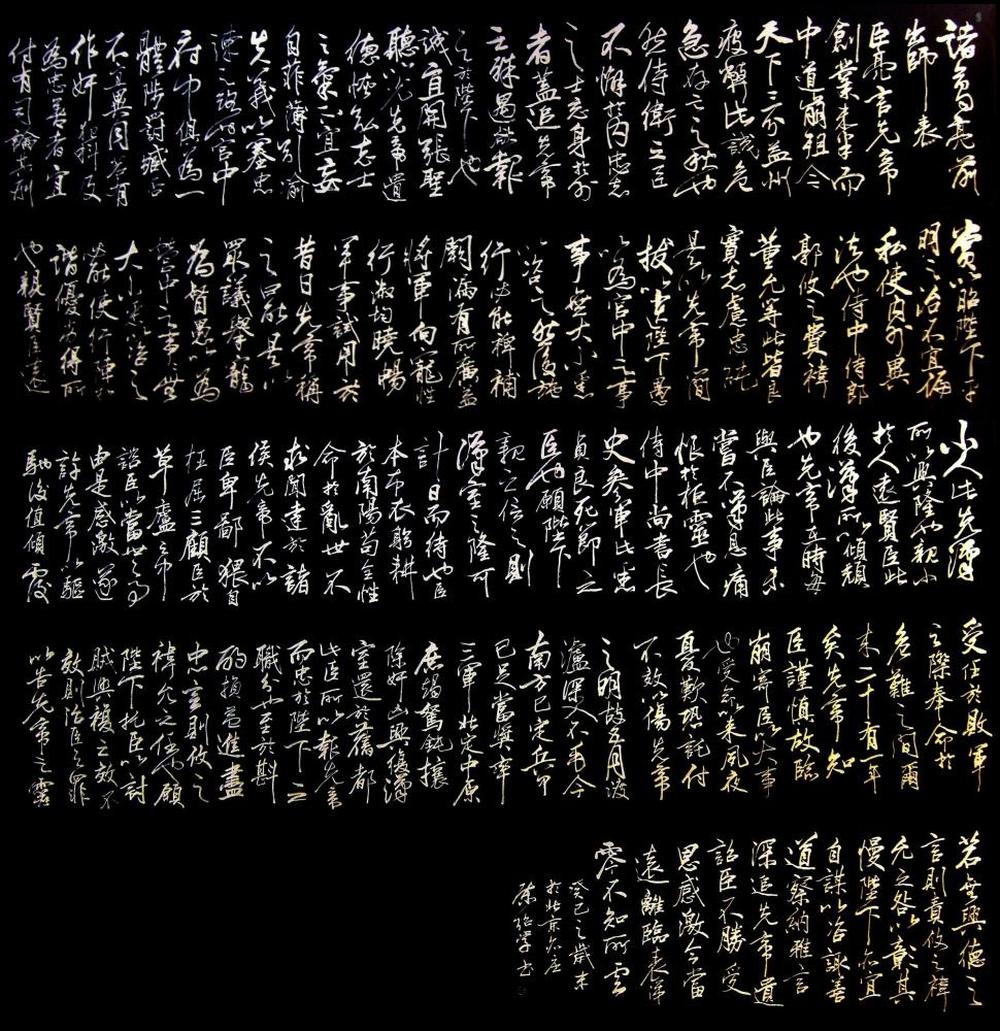 諸葛亮前
出師表
臣亮言先帝
創業未半而
中道崩殂今
天下三分益州
疲弊此誠危
急存亡之秋也
然侍衛之臣
不懈於內忠志
之士忘身於外
者蓋追先帝
之殊遇欲報
之於陛下也
誠宜開張聖
聽以光先帝遺
德恢弘志士
之氣不宜妄
自菲薄引喻
失義以塞忠
諫之路也宮中
府中俱為一
體陟罰臧否
不宜異同若有
作奸犯科及
為忠善者宜
付有司論其刑
賞以昭陛下平
明之治不宜偏
私使內外異
法也侍中侍郎
郭攸之費禕
董允等此皆良
實志慮忠純
是以先帝簡
拔以遺陛下愚
以為宮中之事
事無大小悉
以咨之然後施
行必能裨補
闕漏有所廣益
將軍向寵性
行淑均曉暢
軍事試用於
昔日先帝稱
之曰能是以
眾議舉寵
為督愚以為
營中之事事無
大小悉以咨之
必能使行陣和
諧優劣得所
也親賢臣遠
小人此先漢
所以興隆也親小
人遠賢臣此
後漢所以傾頹
也先帝在時每
與臣論此事未
嘗不嘆息痛
恨於桓靈也
侍中尚書長
史參軍此悉
貞良死節之
臣也願陛下
親之信之則
漢室之隆可
計日而待也臣
本布衣躬耕
於南陽苟全性
命於亂世不
求聞達於諸
侯先帝不以
臣卑鄙猥自
枉屈三顧臣於
草廬之中
諮臣以當世之事
由是感激遂
許先帝以驅
馳後值傾覆
受任於敗軍
之際奉命於
危難之間爾
來二十有一年
矣先帝知
臣謹慎故臨
崩寄臣以大事
也受命以來夙夜
憂歎恐託付
不效以傷先帝
之明故五月渡
瀘深入不毛今
南方已定兵甲
已足當獎率
三軍北定中原
庶竭駑鈍攘
除奸凶興復漢
室還於舊都
此臣所以報先帝
而忠於陛下之
職分也至於斟
酌損益進盡
忠言則攸之
禕允之任也願
陛下托臣以討
賊興復之效不
效則治臣之罪
以告先帝之靈
若無興德之
言則責攸之禕
允之咎以彰其
慢陛下亦宜
自謀以咨諏善
道察納雅言
深追先帝遺
詔臣不勝受
恩感激今當
遠離臨表涕
零不知所云
癸巳之歲末
於北京
書